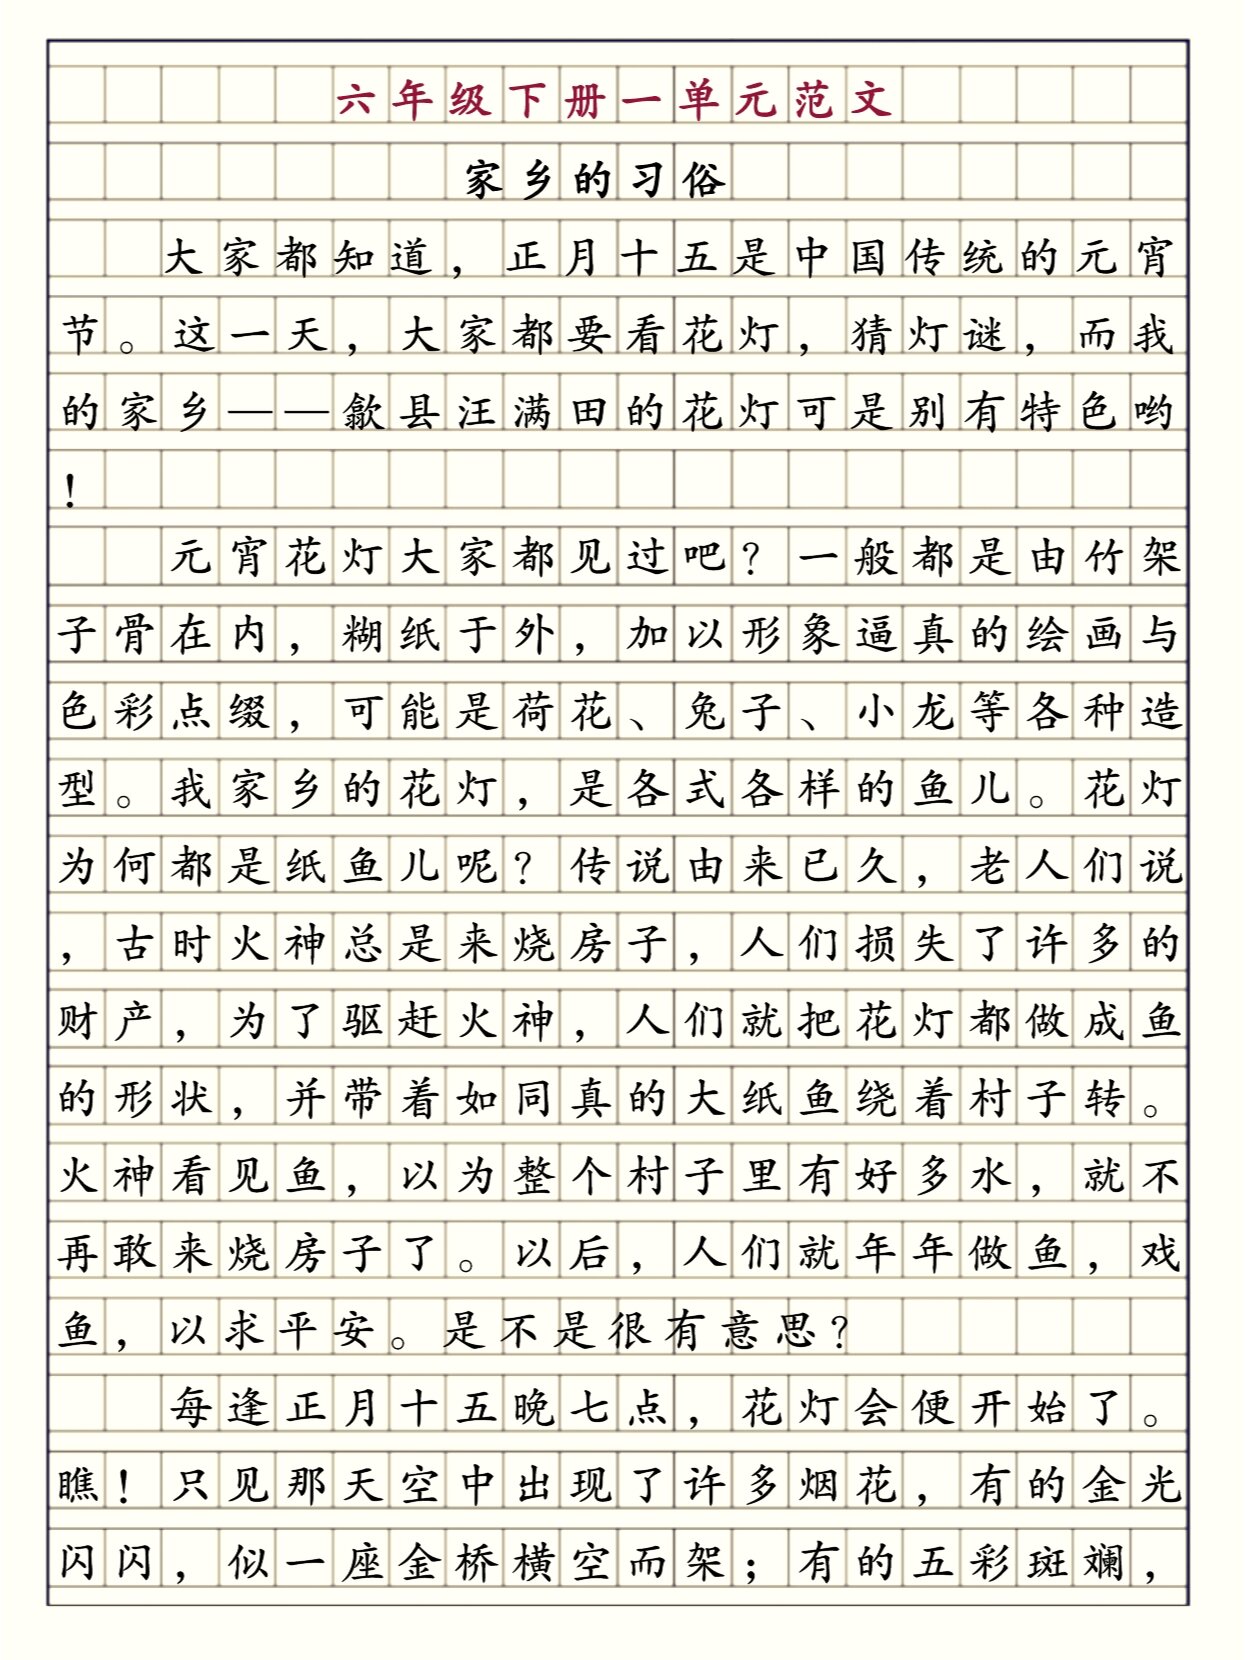 六年级下册一单元范文
家乡的习俗
大家都知道，正月十五是中国传统的元宵
节。这一天，大家都要看花灯，猜灯谜，而我
的家乡——歙县汪满田的花灯可是别有特色哟
！
元宵花灯大家都见过吧？一般都是由竹架
子骨在内，糊纸于外，加以形象逼真的绘画与
色彩点缀，可能是荷花、兔子、小龙等各种造
型。我家乡的花灯，是各式各样的鱼儿。花灯
为何都是纸鱼儿呢？传说由来已久，老人们说
，古时火神总是来烧房子，人们损失了许多的
财产，为了驱赶火神，人们就把花灯都做成鱼
的形状，并带着如同真的大纸鱼绕着村子转。
火神看见鱼，以为整个村子里有好多水，就不
再敢来烧房子了。以后，人们就年年做鱼，戏
鱼，以求平安。是不是很有意思？
每逢正月十五晚七点，花灯会便开始了。
瞧！只见那天空中出现了许多烟花，有的金光
闪闪，似一座金桥横空而架；有的五彩斑斓，